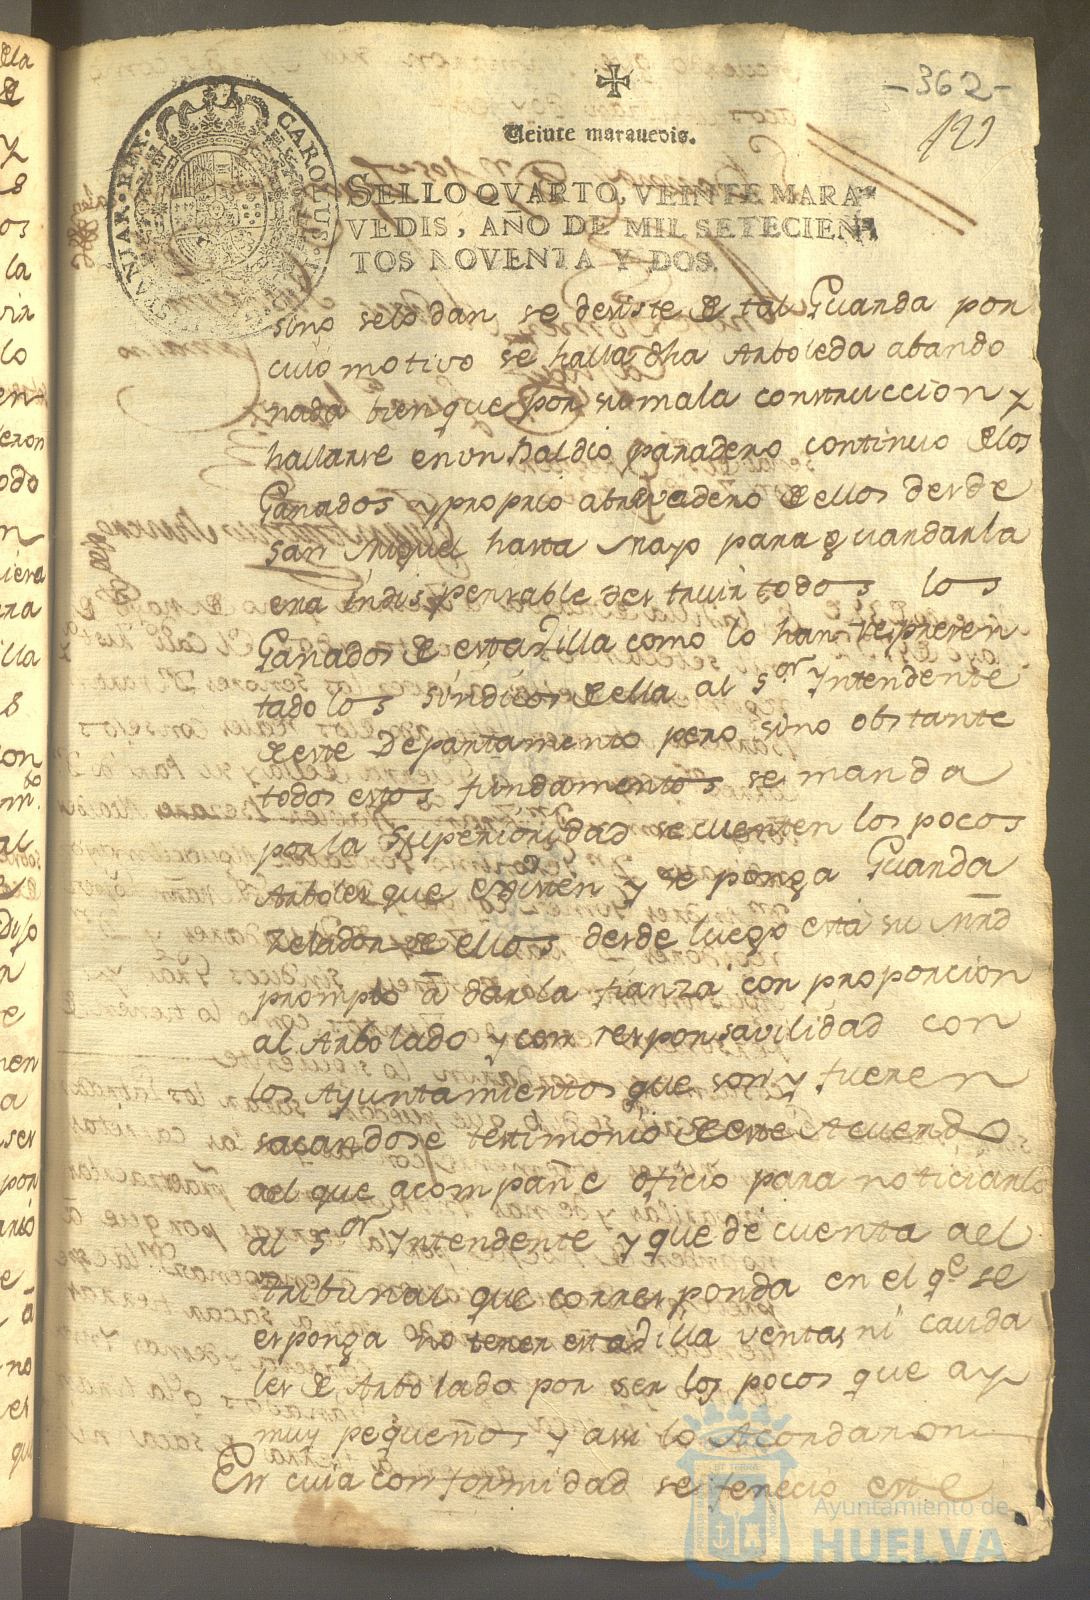 -362-
121
Veinte marauedis.
HISPANIAR. REX. CAROLUS. I
SELLO QVARTO, VEINTE MARA-
VEDIS, AÑO DE MIL SETECIEN-
TOS NOVENTA Y DOS.
sino selo dan se desiste de tal Guarda por
cuio motivo se halla dha Arboleda abando
nada bien que por su mala construccion y
hallarse en un Baldio paradero continuo de los
Ganados y proprio abrevadero de ellos desde
san Miguel hasta Mayo para guardarla
era indispensable destruir todos los
Ganados de esta Villa como lo han represen
tado los sindicos de ella al Sor Yntendente
de este Departamento pero sino obstante
todos estos fundamentos se manda
por la superioridad se cuenten los pocos
Arboles que existen y se ponga Guarda
Zelador de ellos desde luego esta su Mrd
prompto a dar la fianza con proporcion
al Arbolado y con responsavilidad con
los Ayuntamientos que son y fueren
sacandose testimonio de este Acuerdo
ael que acompañe oficio para noticiarlo
al Sor Yntendente y que de cuenta ael
tribunal que corresponda en el qe se
esponga no tener esta Villa ventas ni cauda
les de Arbolado por ser los pocos que ay
muy pequeños y assi lo Acordaron
En cuia conformidad se fenecio este
Ayuntamiento de
HUELVA